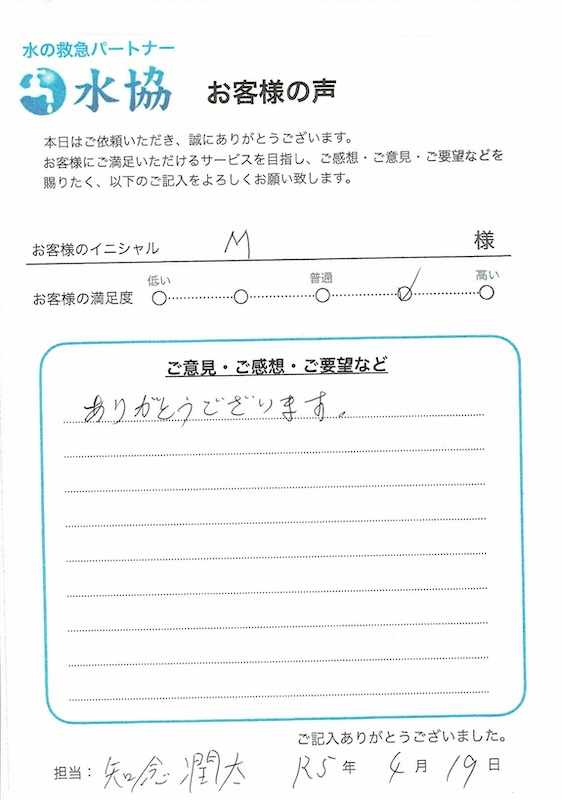 水の救急パートナー
水協 お客様の声
本日はご依頼いただき、誠にありがとうございます。
お客様にご満足いただけるサービスを目指し、ご感想・ご意見・ご要望などを
賜りたく、以下のご記入をよろしくお願い致します。
お客様のイニシャル M 様
低い 普通 高い
お客様の満足度
ご意見・ご感想・ご要望など
ありがとうございます。
ご記入ありがとうございました。
担当：知念潤太 R5年 4月 19日